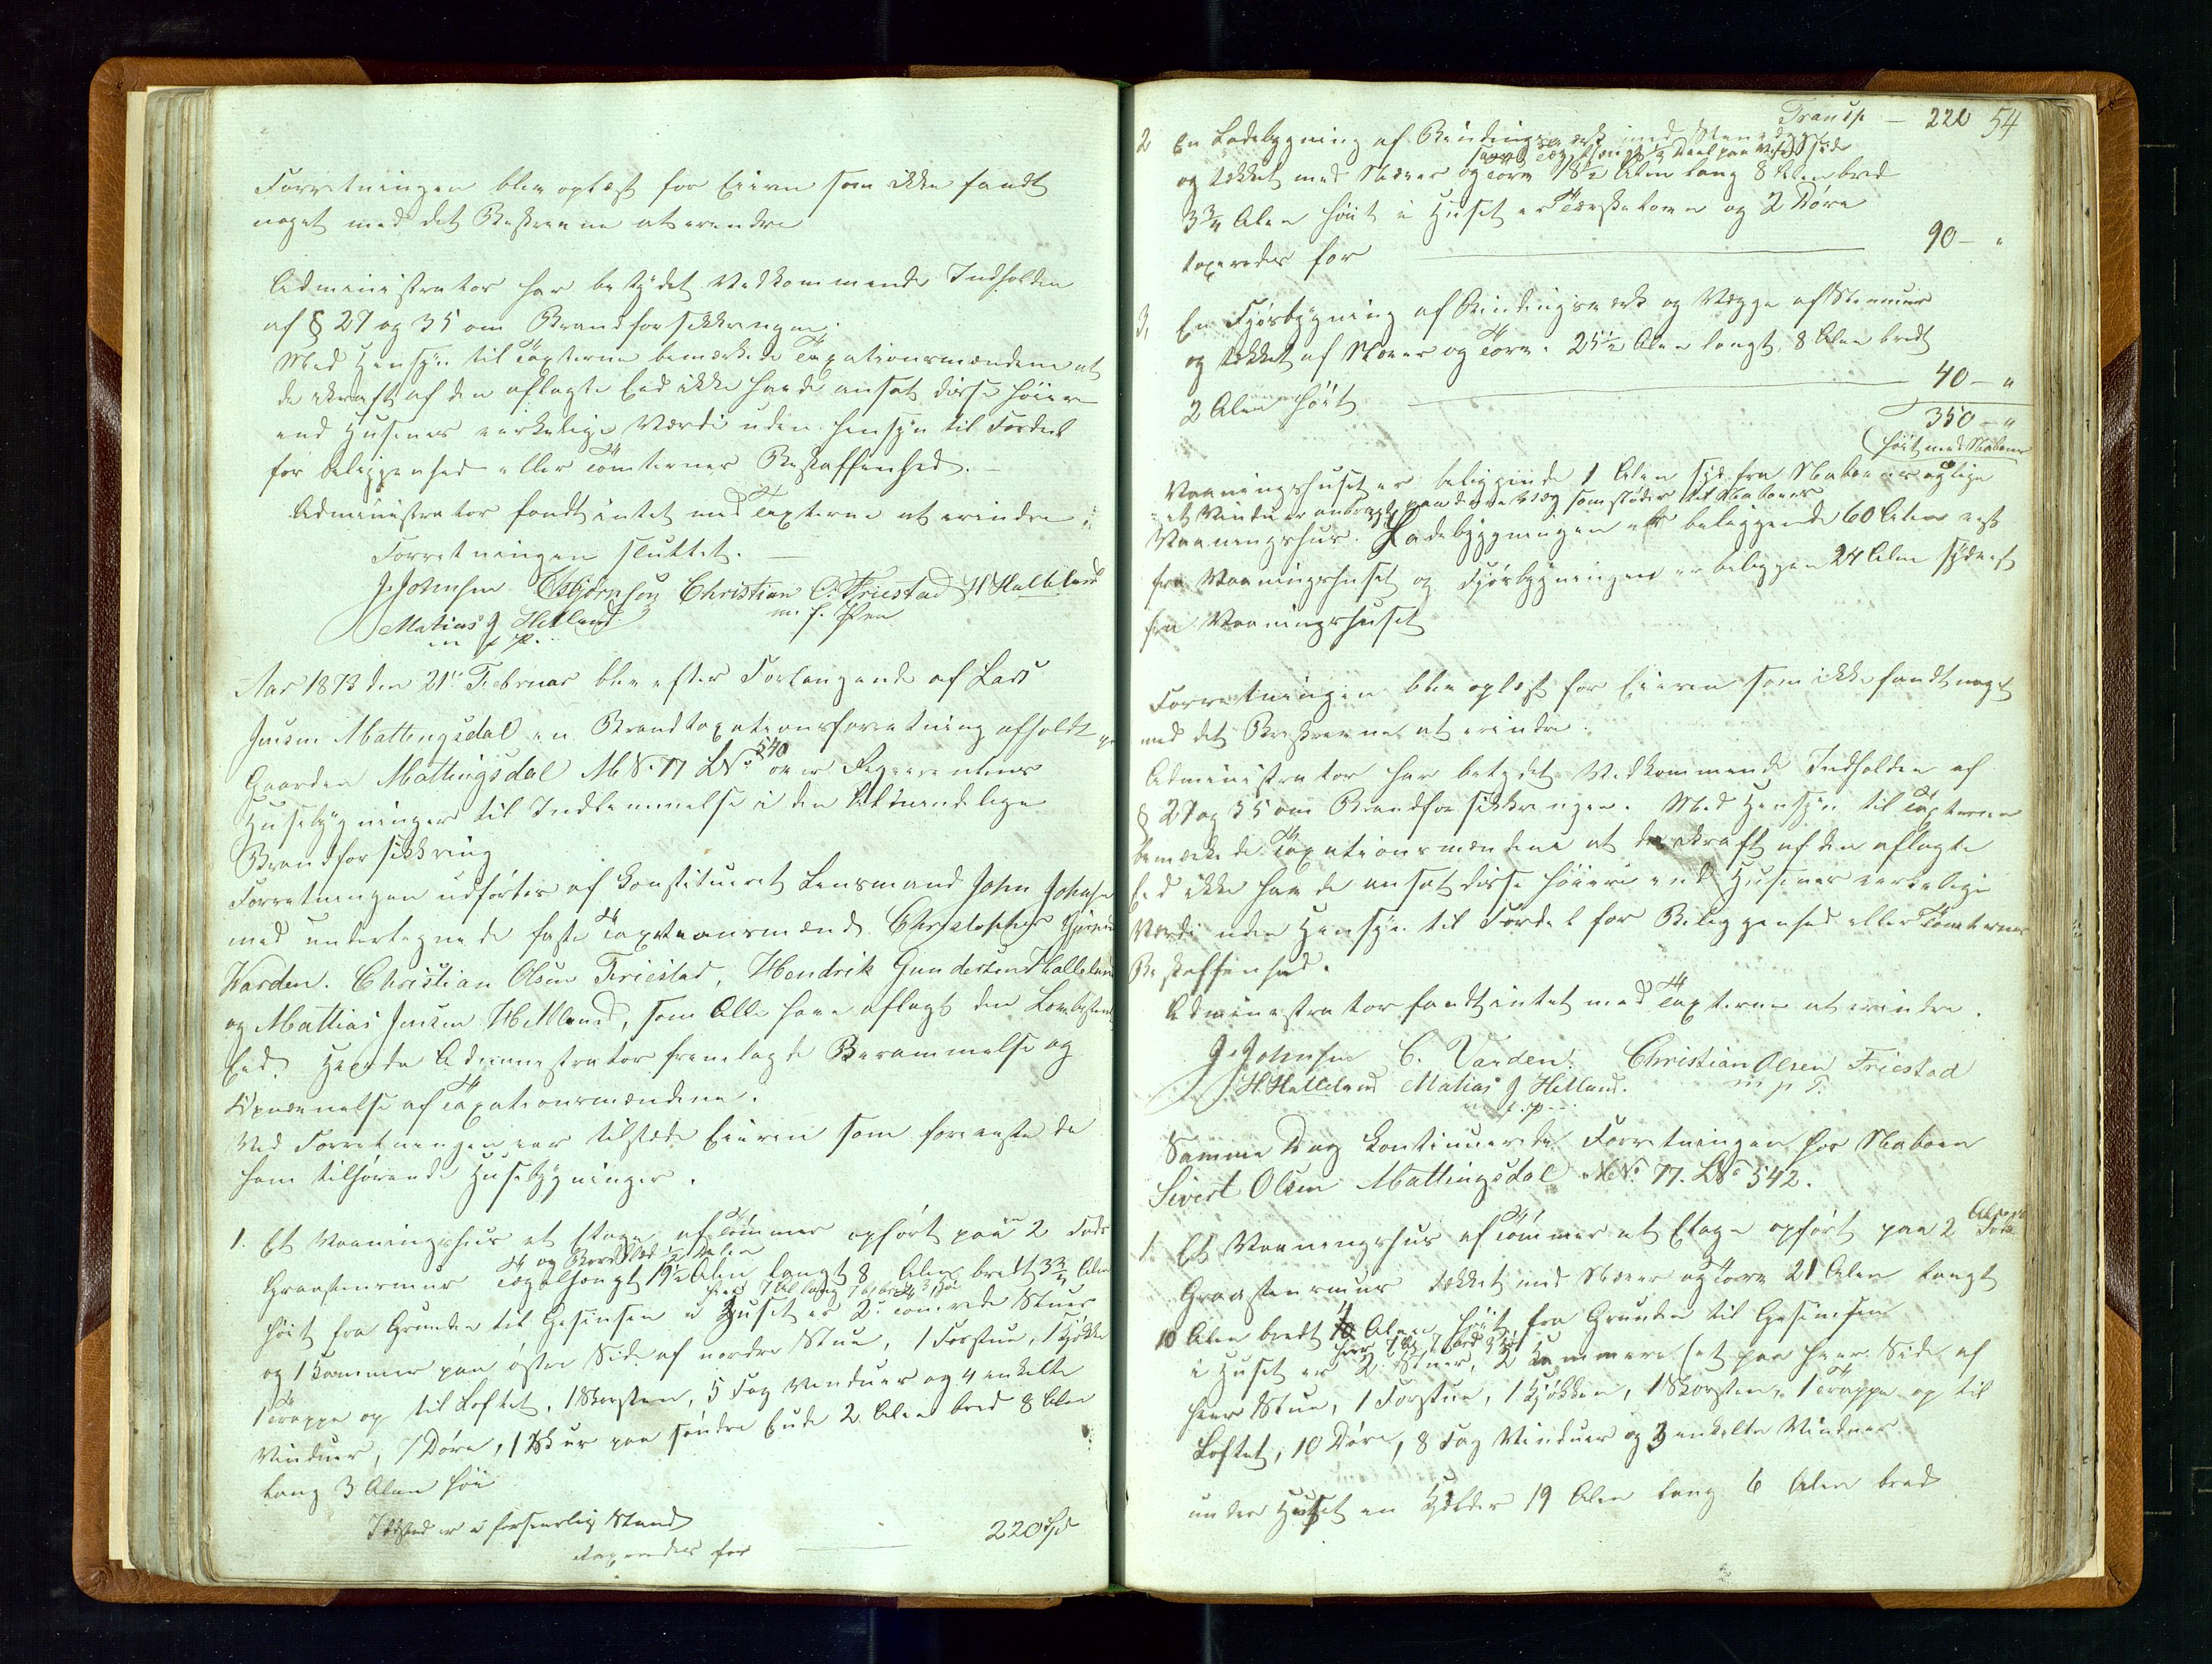 Forretningen blev oplæst for Eieren som ikke fandt
noget med det Beskrevne at erindre
Administrator har betydet Vedkommende Indholden
af § 27 og 35 om Brandforsikkringen.
Med Hensyn til Taxterne bemærkede Taxationsmændene at
de ikraft af den aflagte Eed ikke havde ansat disse høiere
end Husenes virkelige Værdi uden hensyn til Fordeel
for beliggenhed eller Tomternes Beskaffenhed.
Administrator fandt intet med Taxterne at erindre.
Forretningen sluttet.
J. Johnsen C Bjørnsen Christian O. Friestad H Halleland
m. f. Pen
Matias J Hetland
m f P.
Aar 1873 den 21de Februar blev efter Forlangende af Lars
Jensen Mattingsdal en Brandtaxationsforretning afholdt paa
Gaarden Mattingsdal M No 77 L No 540 over Reqvirentens
Husebygninger til Indlemmelse i den Almindelige
Brandforsikkring
Forretningen udførtes af Constitueret Lensmand John Johnsen
med undertegnede faste Taxationsmænd Christopher Bjørnsen
Varden. Christian Olsen Friestad, Hendrik Gundersen Halleland
og Mattias Jensen Hetland, som Alle have aflagt den Lovbestemte
Eed. Hvorda Administrator fremlagde Berammelse og
Opnævnelse af Taxationsmændene.
Ved Forretningen var tilstede Eieren som foreviste de
ham tilhørende Husebygninger.
1. Et Vaaningshus et Etage af Tømmer opført paa 2 Fods
Graastensmur Tegelhængt og Bordklæd ½ Delen 19½ Alen langt 8 Alen bredt 3¾ Alen
høit fra Grunden til Gesimsen i Huset er 2de Tømrede Stuer
og 1 Kammer paa østre Side af nordre Stue, 1 Forstue, 1 Kjøkken
1 Trappe op til Loftet, 1 Skorsten, 5 Fag Vinduer og 4 enkelte
Vinduer, 7 Døre, 1 Skur paa søndre Ende 2 Alen bred 8 Alen
lang 3 Alen høi
Ildsted er i forsvarlig Stand
taxeredes for 220 Spd
Transp — 220 54
2 En Ladebygning af Bindingsværk med Stenvægge
og tækket med Næver og Torv 18½ Alen lang 8 Alen bred
3¾ Alen høit i Huset er Tærskelove og 2 Døre
taxeredes for 90 — "
3, En Fjøsbygning af Bindingsværk og Vægge af Stenmur
og tækket af Næver og Torv. 25½ Alen langt, 8 Alen bredt
2 Alen høit 40 — "
350 — "
Vaaningshuset er beliggende 1 Alen syd fra Naboens og lige høit med Naboens
et Vindu er anbragt paa denne Væg som støder til Naboens
Vaaningshus. Ladebygningen er beliggende 60 Alen vest
fra Vaaningshuset og Fjøsbygningen er beliggen 24 Alen sydvest
fra Vaaningshuset
Forretningen blev oplæst for Eieren som ikke fandt noget
med det Beskrevne at erindre.
Administrator har betydet Vedkommende Indholden af
§ 27 og 35 om Brandforsikkringen. Med Hensyn til Taxterne
bemærkede Taxationsmændene at de ikraft af den aflagte
Eed ikke havde ansat disse høiere end Husenes virkelige
Værdi uden Hensyn til Fordel for Beliggenhed eller Tomternes
Beskaffenhed.
Administrator fandt intet med Taxterne at erindre.
J. Johnsen C. Varden. Christian Olsen Friestad
H Halleland Matias J Hetland. m p P.
m f. P.
Samme Dag Continuerede Forretningen hos Naboen
Sivert Olsen Mattingsdal M No. 77. L No 542.
1. Et Vaaningshus af Tømmer et Etage opført paa 2 Fods
Graastensmur tækket med Næver og Torv 21 Alen langt
10 Alen bredt 4 Alen høit fra Grunden til Gesimsen
i Huset er 2 Stuer, 2 Kammere (et paa hver Side af
hver Stue, 1 Forstue, 1 Kjøkken, 1 Skorsten, 1 Trappe op til
Loftet, 10 Døre, 8 Fag Vinduer og 3 enkelte Vinduer
under Huset en Kjelder 19 Alen lang 6 Alen bred